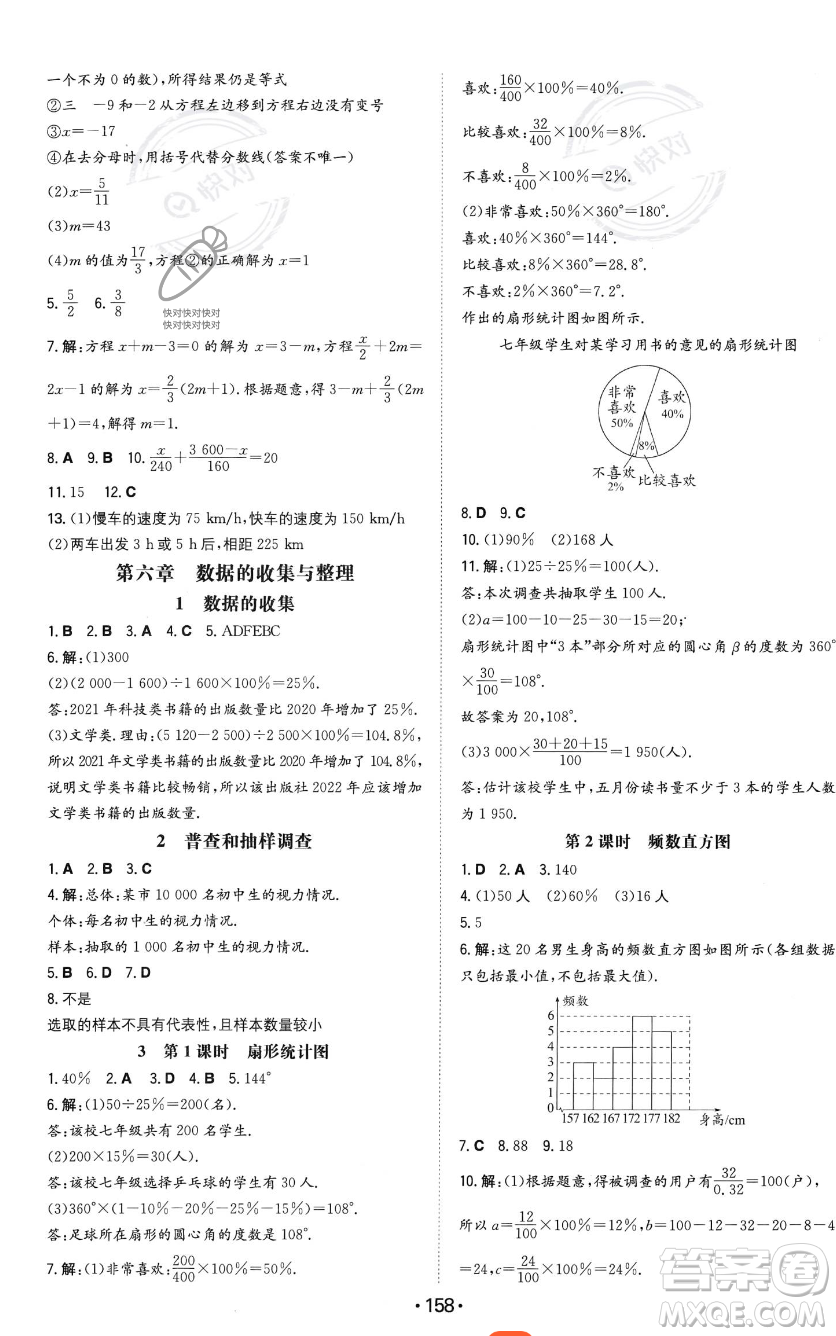 一个不为 0 的数),所得结果仍是等式
②三 －9 和－2 从方程左边移到方程右边没有变号
③x＝－17
④在去分母时,用括号代替分数线(答案不唯一)
(2)x＝5/11
(3)m＝43
(4)m 的值为17/3,方程②的正确解为 x＝1
5. 5/2 6. 3/8
7.解:方程 x＋m－3＝0 的解为 x＝3－m,方程 x/2＋m＝
2x－1 的解为 x＝2/3(2m＋1).根据题意,得 3－m＋2/3(2m
＋1)＝4,解得 m＝1.
8. A 9. B 10. x/240＋(3 600－x)/160＝20
11.15 12. C
13.(1)慢车的速度为 75 km/h,快车的速度为 150 km/h
(2)两车出发 3 h 或 5 h 后,相距 225 km
第六章 数据的收集与整理
1 数据的收集
1. B 2. B 3. A 4. C 5. ADFEBC
6.解:(1)300
(2)(2 000－1 600)÷1 600×100％＝25％.
答:2021 年科技类书籍的出版数量比 2020 年增加了 25％.
(3)文学类.理由:(5 120－2 500)÷2 500×100％＝104.8％,
所以 2021 年文学类书籍的出版数量比 2020 年增加 104.8％,
说明文学类书籍比较畅销,所以该出版社 2022 年应该增加
文学类书籍的出版数量.
2 普查和抽样调查
1. A 2. B 3. C
4.解:总体:某市 10 000 名初中生的视力情况.
个体:每名初中生的视力情况.
样本:抽取的 1 000 名初中生的视力情况.
5. B 6. D 7. D
8.不是
选取的样本不具有代表性,且样本数量较小
3 第 1 课时 扇形统计图
1.40％ 2. A 3. D 4. B 5.144°
6.解:(1)50÷25％＝200(名).
答:该校七年级共有 200 名学生.
(2)200×15％＝30(人).
答:该校七年级选择乒乓球的学生有 30 人.
(3)360°×(1－10％－20％－25％－15％)＝108°.
答:足球所在扇形的圆心角的度数是 108°.
7.解:(1)非常喜欢:200/400×100％＝50％.
喜欢:160/400×100％＝40％.
比较喜欢:32/400×100％＝8％.
不喜欢:8/400×100％＝2％.
(2)非常喜欢:50％×360°＝180°.
喜欢:40％×360°＝144°.
比较喜欢:8％×360°＝28.8°.
不喜欢:2％×360°＝7.2°.
作出的扇形统计图如图所示.
七年级学生对某学习用书的意见的扇形统计图
非常
喜欢
50%
喜欢
40%
8%
不喜欢
2%
比较喜欢
8. D 9. C
10.(1)90％ (2)168 人
11.解:(1)25÷25％＝100(人).
答:本次调查共抽取学生 100 人.
(2)a＝100－10－25－30－15＝20,
扇形统计图中“3 本”部分所对应的圆心角 β 的度数为 360°
×30/100＝108°.
故答案为 20,108°.
(3)3 000×(30＋20＋15)/100＝1 950(人).
答:估计该校学生中,五月份读书量不少于 3 本的学生人数
为 1 950.
第 2 课时 频数直方图
1. D 2. A 3.140
4.(1)50 人 (2)60％ (3)16 人
5.5
6.解:这 20 名男生身高的频数直方图如图所示(各组数据
只包括最小值,不包括最大值).
频数
6
5
4
3
2
1
0
157 162 167 172 177 182 身高/cm
7. C 8.88 9.18
10.解:(1)根据题意,得被调查的用户有32/0.32＝100(户),
所以 a＝12/100×100％＝12％,b＝100－12－32－20－8－4
＝24,c＝24/100×100％＝24％.
快对
快对快对快对
快对快对快对
快对
答案圈
MXQE.COM
·158·